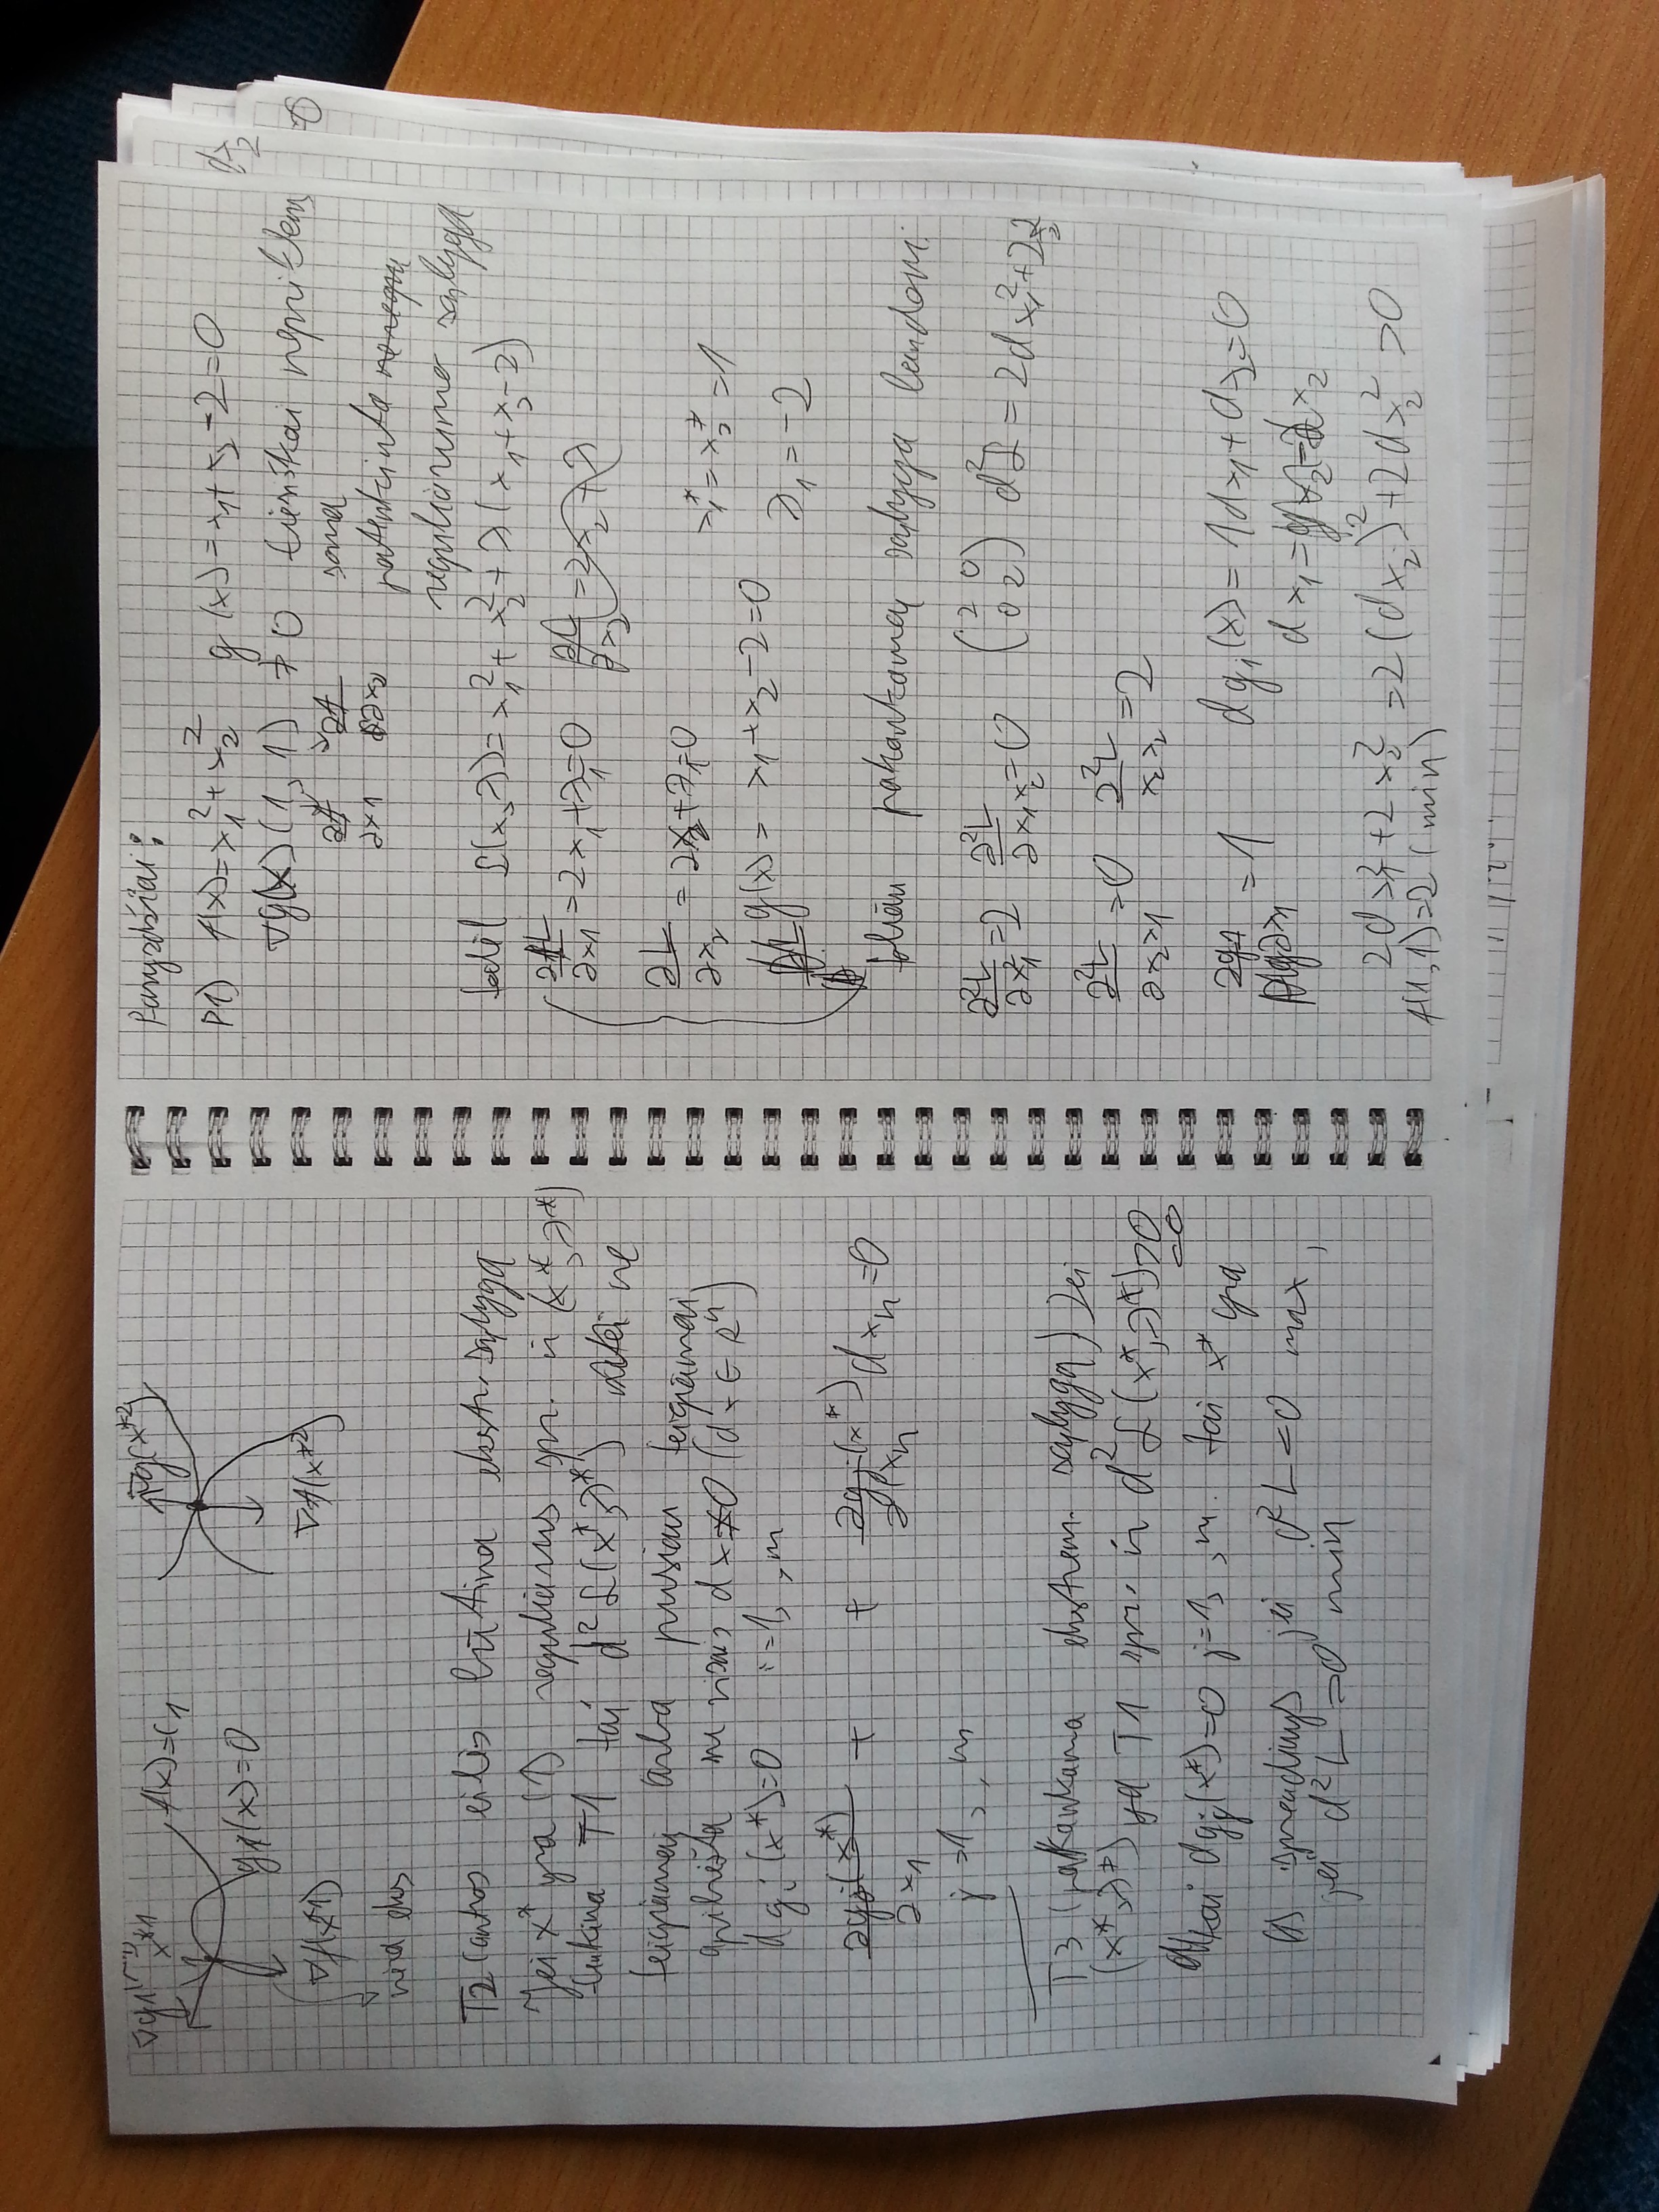 ∇g1 x*1
f(x)=C1
g1(x)=0
∇f(x*1)
nėra eks
∇g(x*2)
∇f(x*2)
T2 (antros eilės būtina ekstr. sąlyga
Jei x* yra (1) reguliarus spr. ir (x*, λ*)
tenkina T1 tai d²L(x*, λ*) ne
teigiamai arba pusiau teigiamai
apibrėžta su visais dx≠0 (dx ∈ Rⁿ)
dgj(x*)=0 i=1, ,m
∂gj(x*)/∂x1 + + ∂gj(x*)/∂xn dxn=0
j=1, , m
T3 (pakankama ekstrem. sąlyga) Jei
(x*, λ*) yra T1 spr. ir d²L(x*, λ*)>0
<0
kai dgj(x*)=0 j=1, ,m. tai x* yra
(1) sprendinys jei d²L<0 max,
jei d²L>0 min
Pavyzdžiai:
P1) f(x)=x1²+x2² g(x)=x1+x2-2=0
∇g(x) (1, 1) ≠0 tiesiškai nepriklem
∂f/∂x1 ∂f/∂x2 soma
patenkinta
reguliarumo sąlyga
todėl L(x, λ)=x1²+x2²+λ(x1+x2-2)
∂L/∂x1=2x1+λ1=0 ∂L/∂x2=2x2+λ
∂L/∂x2=2x2+λ1=0
x1*=x2*=1
g(x)=x1+x2-2=0
λ1=-2
toliau pakankamą sąlygą randam:
∂²L/∂x1²=2 ∂²L/∂x1x2=0 (2 0
0 2) d²L=2dx1²+2x2²
∂²L/∂x2x1=0 ∂²L/x2x2=2
∂g1/∂x1=1 dg1(x)=1dx1+dx2=0
dx1=-dx2
2dx1²+2x2²=2(dx2)²+2dx2²>0
f(1,1)=2 (min)
dx2